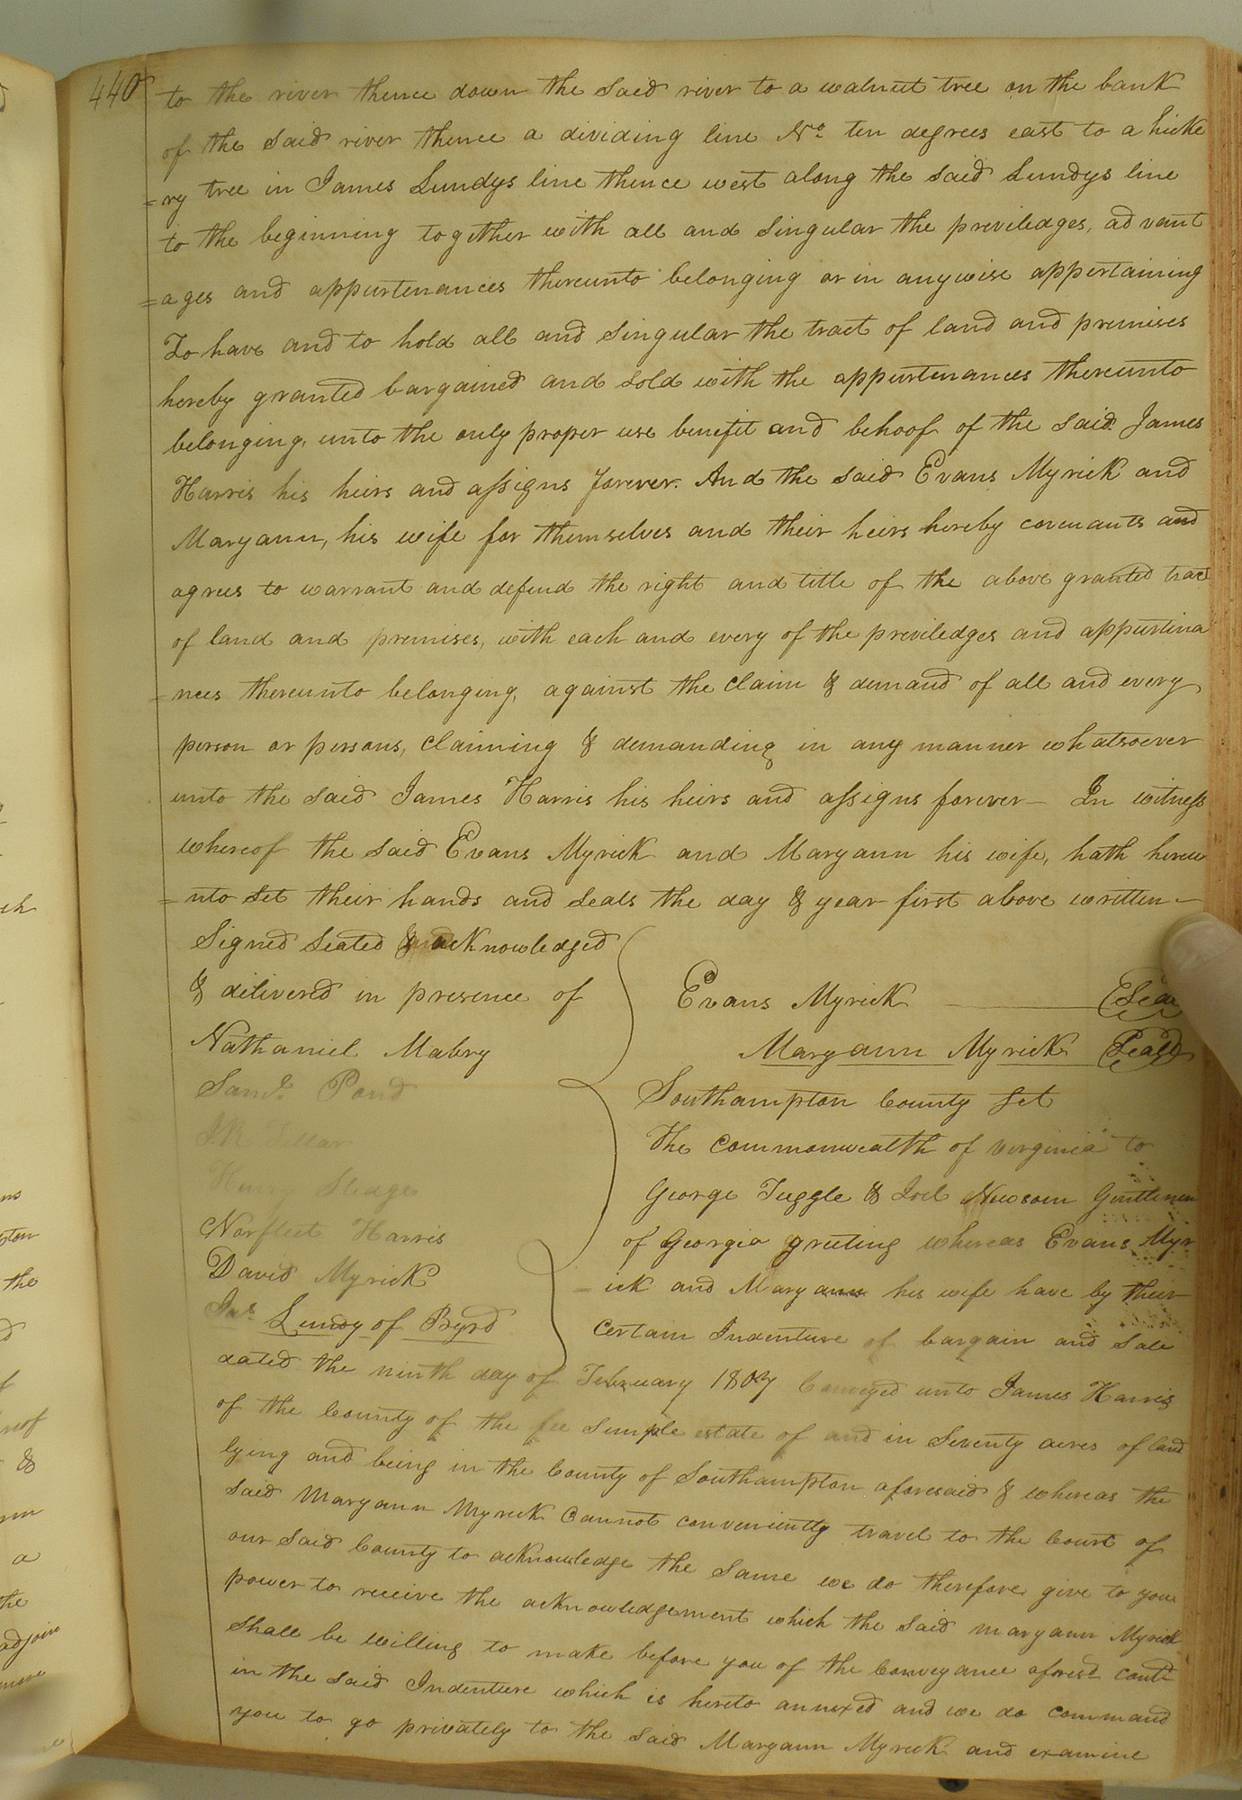 440
to the river thence down the said river to a walnut tree on the bank
of the said river thence a dividing line No ten degrees east to a hicke
=ry tree in James Lundys line thence west along the said Lundys line
to the beginning together with all and singular the priviledges, advant
=ages and appurtenances thereunto belonging or in anywise appertaining
To have and to hold all and singular the tract of land and premises
hereby granted bargained and sold with the appurtenances thereunto
belonging, unto the only proper use benefit and behoof of the said James
Harris his heirs and assigns forever. And the said Evans Myrick and
Maryann, his wife for themselves and their heirs hereby covenants and
agrees to warrant and defend the right and title of the above granted tract
of land and premises, with each and every of the priviledges and appurtina
=nces thereunto belonging, against the claim & demand of all and every
person or persons, claiming & demanding in any manner whatsoever
unto the said James Harris his heirs and assigns forever — In witness
whereof the said Evans Myrick and Maryann his wife, hath hereu
=nto set their hands and seals the day & year first above written —
Signed Sealed & acknowledged
& delivered in presence of
Nathaniel Mabry
Saml. Pond
Henry Sledge
Norfleet Harris
David Myrick
Jns Lundy of Byrd
Evans Myrick Seal
Maryann Myrick Seal
Southampton County Set
The commonwealth of virginia to
George Tuggle & Joel Newsom Gentlemen
of Georgia greeting whereas Evans Myr
=ick and Maryann his wife have by their
certain Indenture of bargain and sale
dated the ninth day of February 1807 Conveyed unto James Harris
of the County of the fee simple estate of and in Seventy acres of land
lying and being in the County of Southampton aforesaid & whereas the
said Maryann Myrick Cannot conveniently travel to the Court of
our said County to acknowledge the same we do therefore give to you
power to receive the acknowledgement which the said maryann Myrick
shall be willing to make before you of the Conveyance aforesd contd
in the said Indenture which is hereto annexed and we do command
you to go privately to the said Maryann Myrick and examine